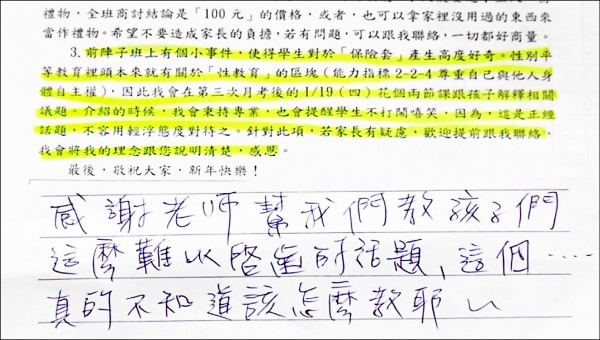 禮物，全班商討結論是「100 元」的價格，或者，也可以拿家裡沒用過的東西來
當作禮物。希望不要造成家長的負擔，若有問題，可以跟我聯絡，一切都好商量。
3. 前陣子班上有個小事件，使得學生對於「保險套」產生高度好奇。性別平
等教育裡頭本來就有關於「性教育」的區塊（能力指標 2-2-4 尊重自己與他人身
體自主權），因此我會在第三次月考後的 1/19（四）花個兩節課跟孩子解釋相關
議題。介紹的時候，我會秉持專業，也會提醒學生不打鬧嘻笑，因為，這是正經
話題，不容用輕浮態度對待之。針對此項，若家長有疑慮，歡迎提前跟我聯絡，
我會將我的理念跟您說明清楚，感恩。
最後，敬祝大家，新年快樂！
感謝老師幫我們教孩子們
這麼難以啓齒的話題、這個……
真的不知道該怎麼教耶